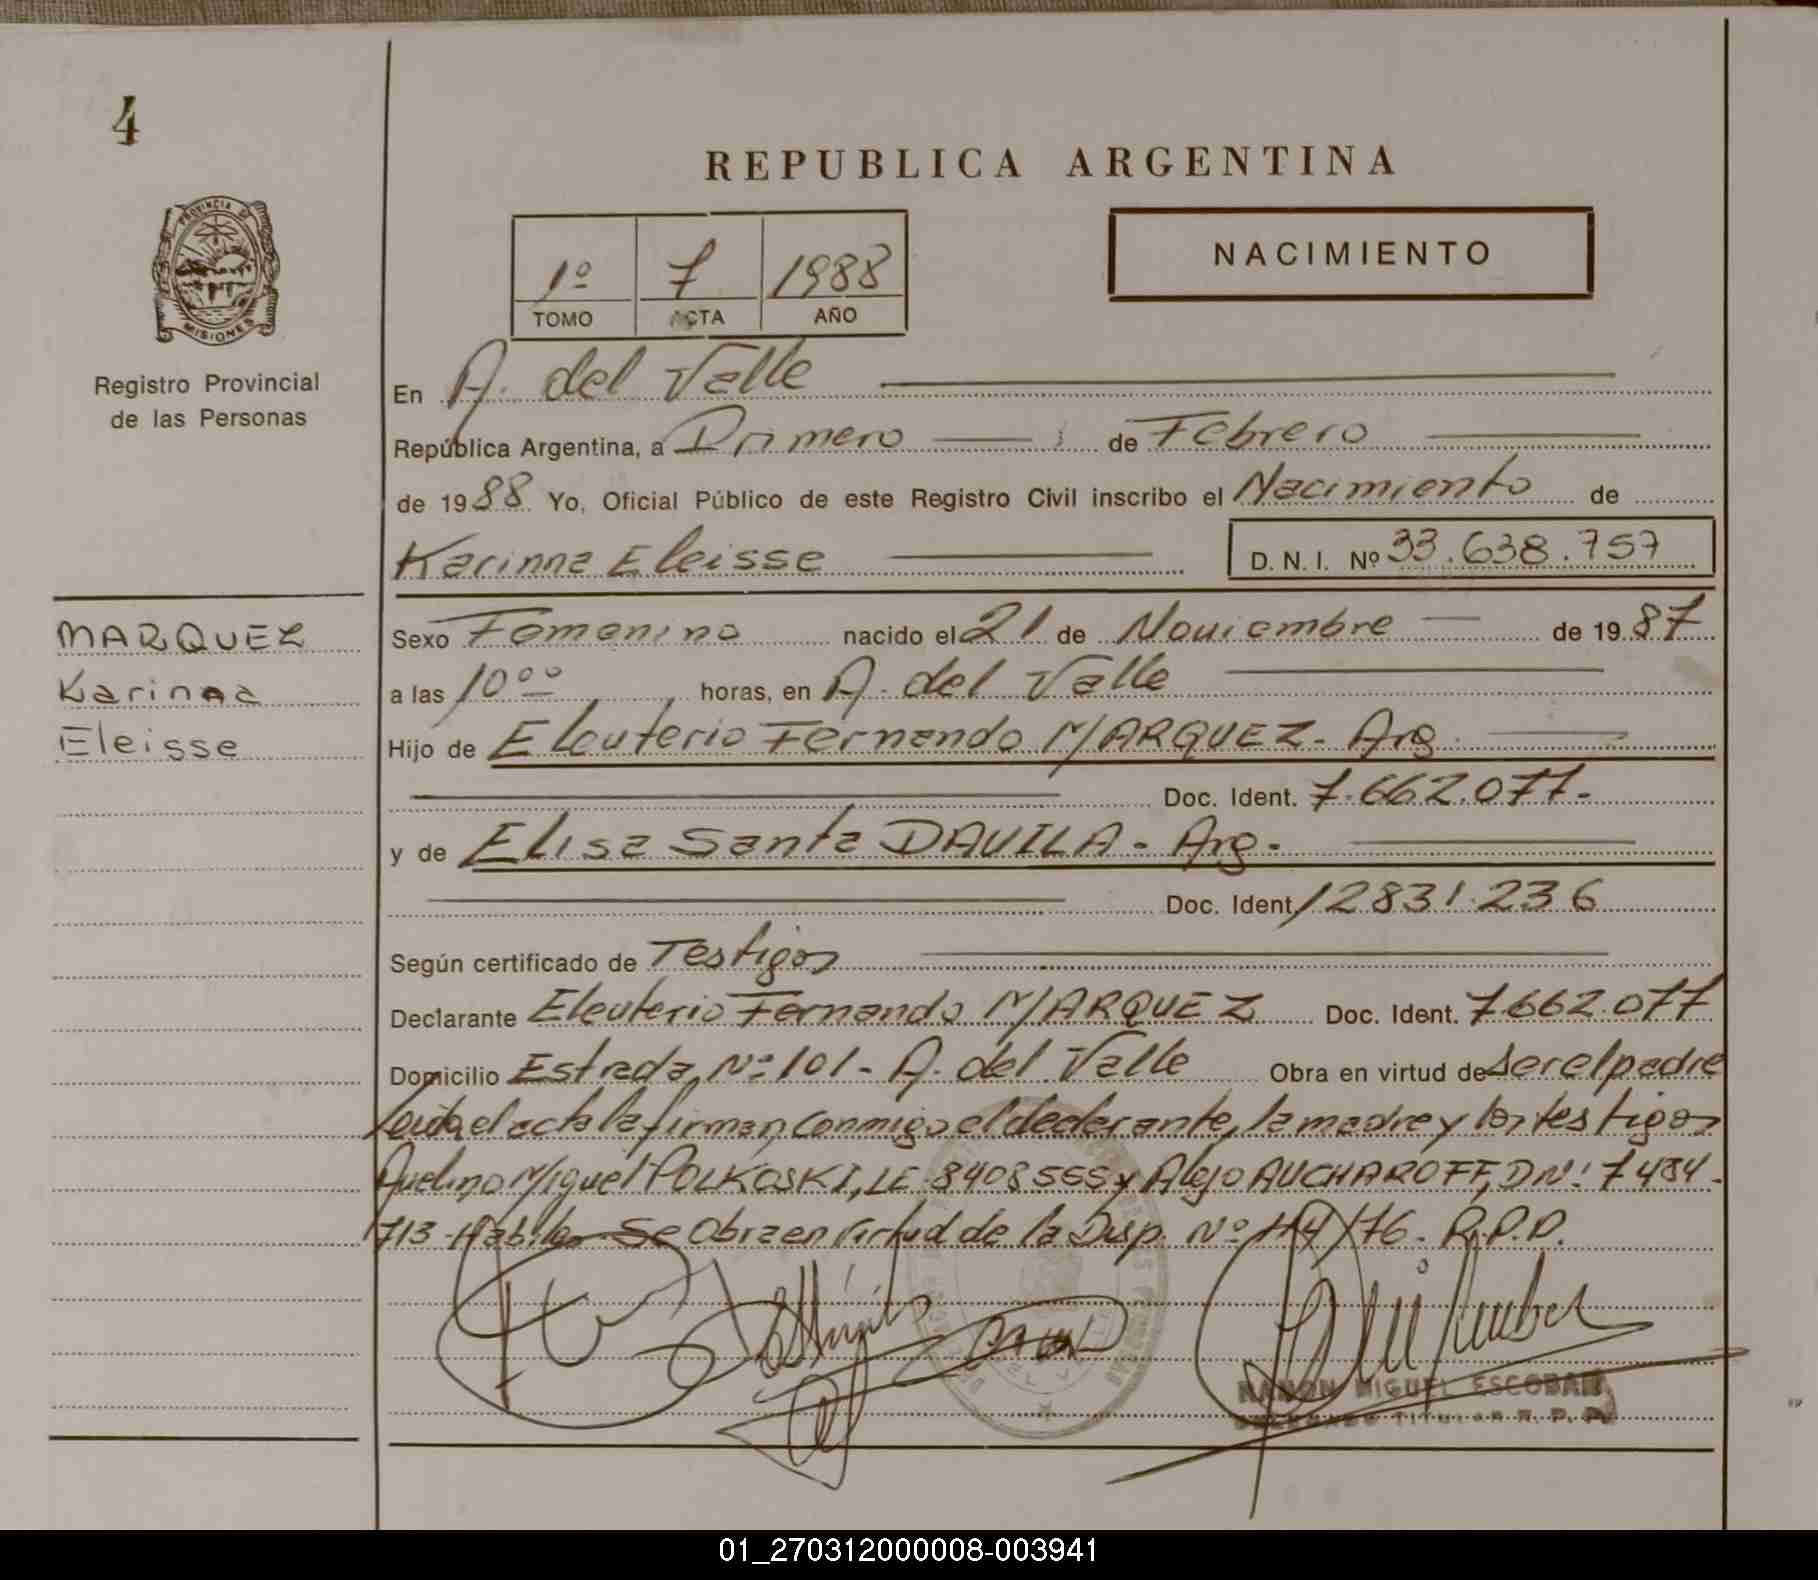 4
REPUBLICA ARGENTINA
PROVINCIA DE
MISIONES
Registro Provincial
de las Personas
1º 7 1988
TOMO ACTA AÑO
NACIMIENTO
En A. del Valle
República Argentina, a Primero de Febrero
de 1988 Yo, Oficial Público de este Registro Civil inscribo el Nacimiento de
Karinna Eleisse D. N. I. Nº 33.638.757
MARQUEZ
Karinna
Eleisse
Sexo Femenino nacido el 21 de Noviembre de 1987
a las 10ºº horas, en A. del Valle
Hijo de Eleuterio Fernando MARQUEZ - Arg.
Doc. Ident. 7.662.077.
y de Elisa Santa DAVILA - Arg.
Doc. Ident. 12831.236
Según certificado de Testigos
Declarante Eleuterio Fernando MARQUEZ Doc. Ident. 7.662.077
Domicilio Estrada Nº 101 - A. del Valle Obra en virtud de ser el padre
Leida el acta la firman conmigo el declarante, la madre y los testigos
Avelino Miguel POLKOSKI, LE 8408565 y Alejo AUCHAROFF, DNI 7484-
713 Habiles Se Obra en Virtud de la Disp. Nº /76. R.P.P.
RAMON MIGUEL ESCOBAR
DELEGADO TITULAR R. P. P.
01_270312000008-003941